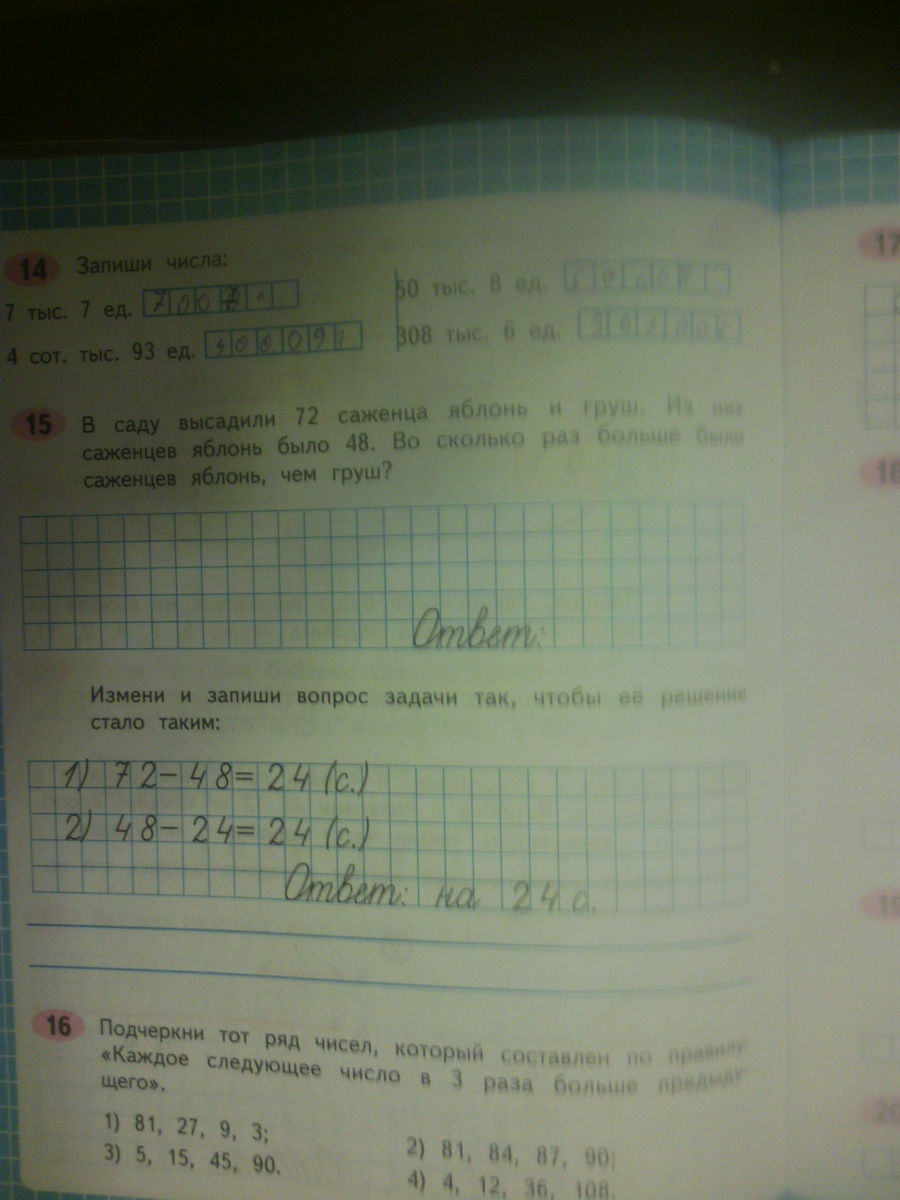 14 Запиши числа:
7 тыс. 7 ед. 7007
50 тыс. 8 ед.
4 сот. тыс. 93 ед. 400093
308 тыс. 6 ед.
15 В саду высадили 72 саженца яблонь и груш. Из них
саженцев яблонь было 48. Во сколько раз больше было
саженцев яблонь, чем груш?
Ответ:
Измени и запиши вопрос задачи так, чтобы её решение
стало таким:
1) 72-48=24 (с.)
2) 48-24=24 (с.)
Ответ: на 24 с.
16 Подчеркни тот ряд чисел, который составлен по правилу
«Каждое следующее число в 3 раза больше предыду
щего».
1) 81, 27, 9, 3;
2) 81, 84, 87, 90;
3) 5, 15, 45, 90.
4) 4, 12, 36, 108.
17
18
19
20